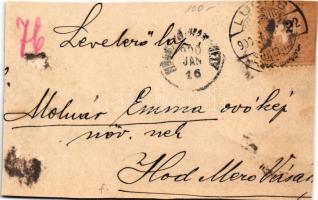 100.-
76
Levelező lap
900
JAN
16
Molnár Emma óvókép
növ. nek
Hod Mező Vásár
f.